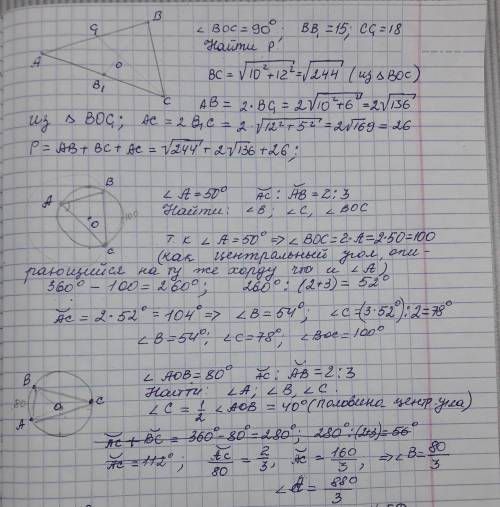 ∠ BOC = 90°; BB₁ = 15; CC₁ = 18
Найти P;
BC = √10²+12² = √244 (из △ BOC)
AB = 2·BC₁ = 2√10²+6² = 2√136
из △ BOC₁; AC = 2B₁C = 2·√12²+5² = 2√169 = 26
P = AB + BC + AC = √244 + 2√136 + 26;
A
B
C
C₁
B₁
O
∠ A = 50° AC : AB = 2 : 3
Найти: ∠B; ∠C, ∠BOC
т.к ∠A = 50° ⇒ ∠BOC = 2·A = 2·50 = 100
(как центральный угол, опи-
рающийся на ту же хорду что и ∠A)
360° - 100 = 260°; 260° : (2+3) = 52°
AC = 2·52° = 104° ⇒ ∠B = 54°; ∠C = (3·52°) : 2 = 78°
∠B = 54°; ∠C = 78°; ∠BOC = 100°
A
B
O
C
100
∠ AOB = 80° AC : AB = 2 : 3
Найти: ∠A; ∠B, ∠C.
∠C = 1/2 ∠AOB = 40° (половина центр. угла)
AC + BC = 360° - 80° = 280°; 280° : (2+3) = 56°
AC = 112°; AC/80 = 2/3, AC = 160/3, ⇒ ∠B = 80/3
∠A = 880/3
B
80
A
O
C